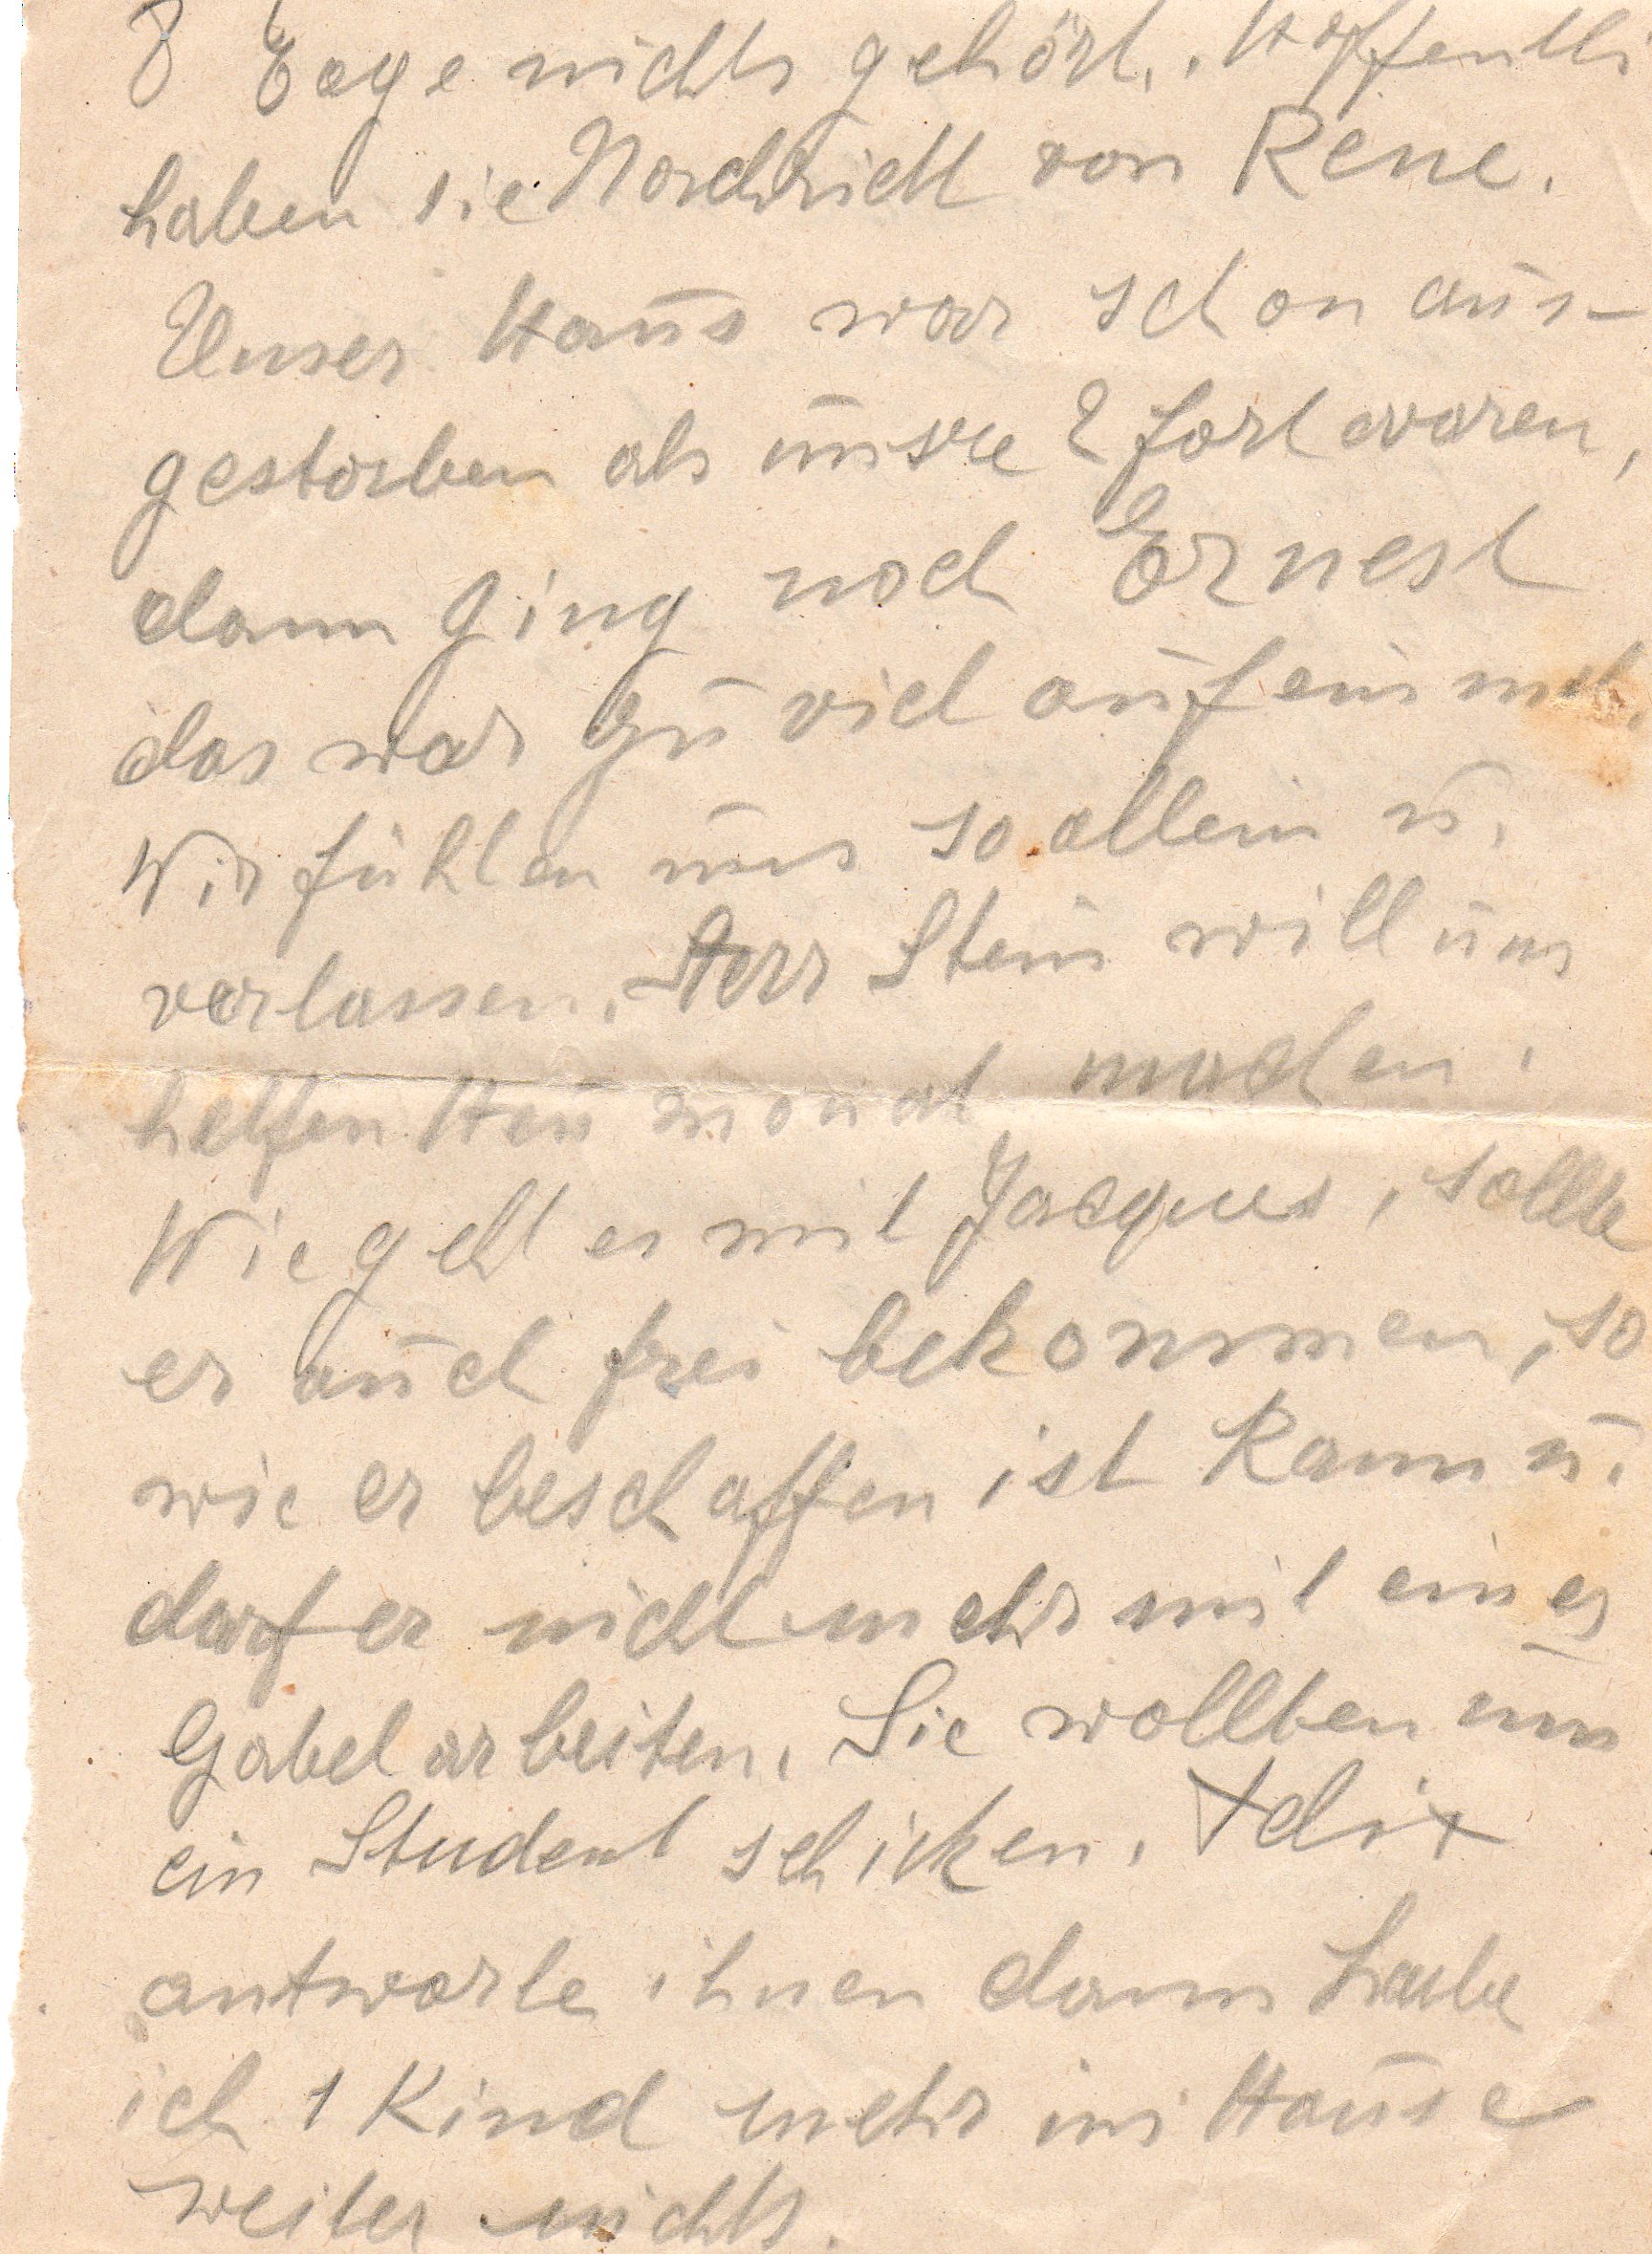 8 Tage nichts gehört. Hoffentli
haben sie Nachricht von Rene.
Unser Haus war schon aus-
gestorben als unsre 2 fort waren,
dann ging noch Ernest
das war zu viel auf einmal.
Wir fühlen uns so allein u.
verlassen. Herr Stein will uns
helfen Heu monat machen.
Wie geht es mit Jacques, sollte
er auch frei bekommen, so
wie er beschaffen ist kann u.
darf er nicht mehr mit einer
Gabel arbeiten. Sie wollten uns
ein Student schicken.
antworte ihnen dann habe
ich 1 Kind mehr im Hause
weiter nichts.